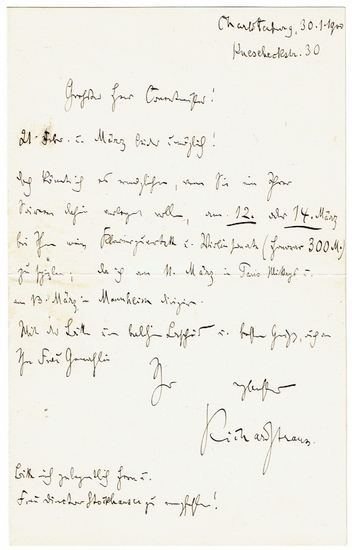 Charlottenburg, 30.1.900
Knesebeckstr. 30
Geehrter Herr Concertmeister!
21. Febr. u. März leider unmöglich!
doch könnte ich es ermöglichen, wenn Sie in Ihrer
Soireen dahin verlegen wollen, am 12. oder 14. März
bei Ihnen mein Klavierquartett u. Violinsonate (Honorar 300 M.)
zu spielen; da ich am 11. März in Paris u.
am 13. März in Mannheim dirigiere.
Mit der Bitte um baldigen Bescheid u. besten Grüßen, auch an
Ihre Frau Gemahlin
Ihr ergebenster
Richard Strauss.
Bitte mich gelegentlich Herrn u.
Frau Director Stockhausen zu empfehlen!